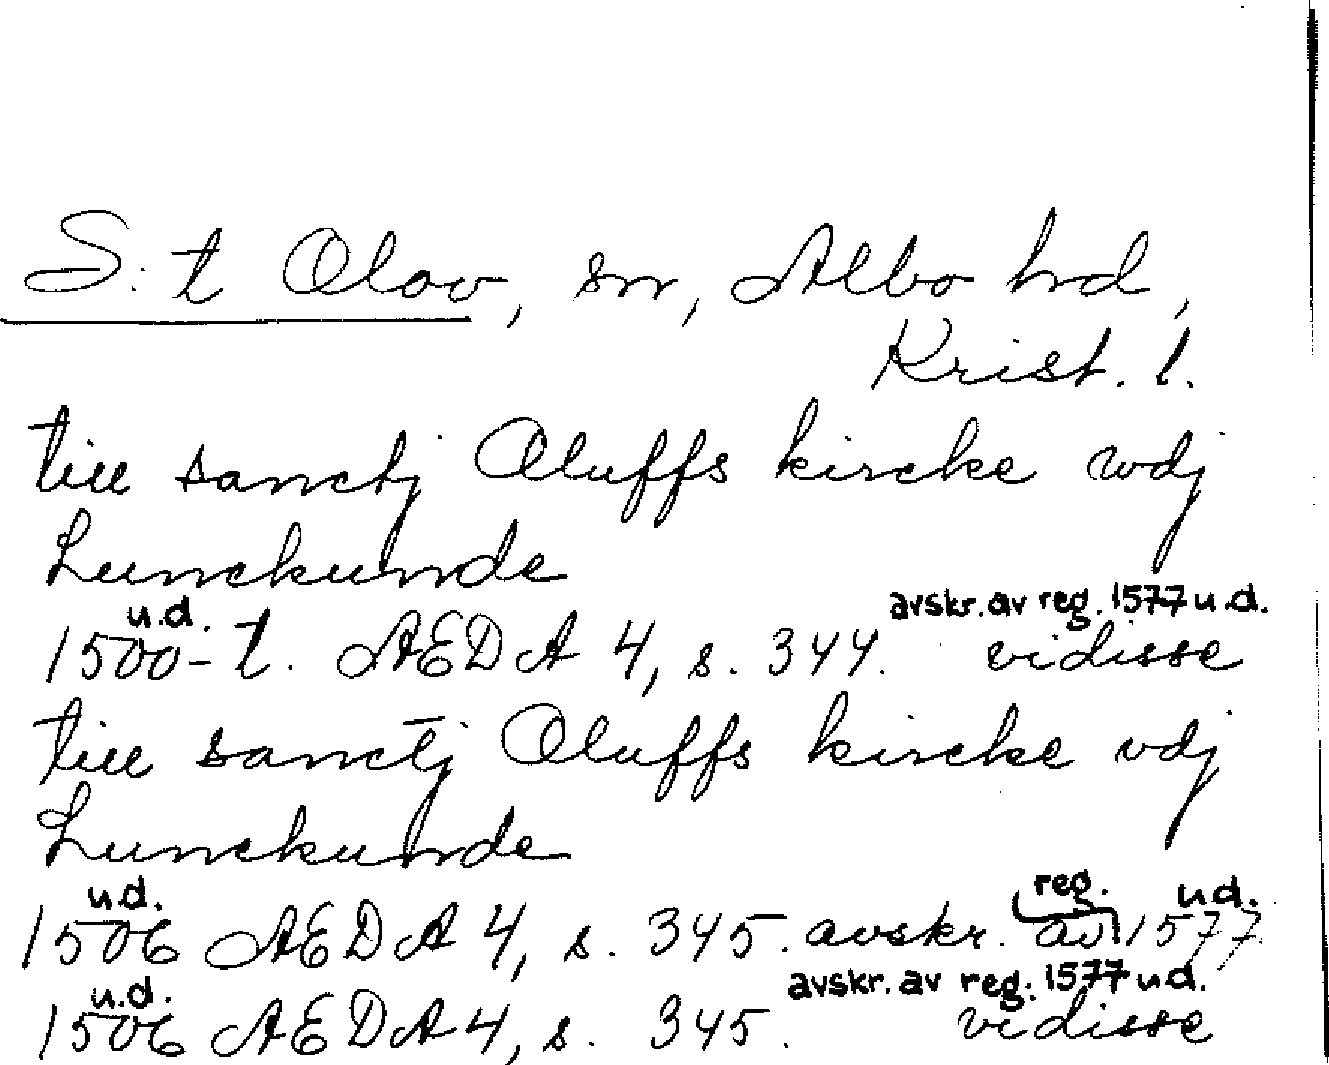 S:t Olov, sn, Albo hd,
Krist. l.
till sanctj Oluffs kircke wdj
Lunckunde
u.d. avskr. av reg. 1577 u.d.
1500-t. AEDA 4, s. 344. vidisse
till sanctj Oluffs kircke vdj
Lunckunde
u.d. reg. u.d.
1506 AEDA 4, s. 345. avskr. av 1577
u.d. avskr. av reg. 1577 u.d.
1506 AEDA 4, s. 345. vidisse